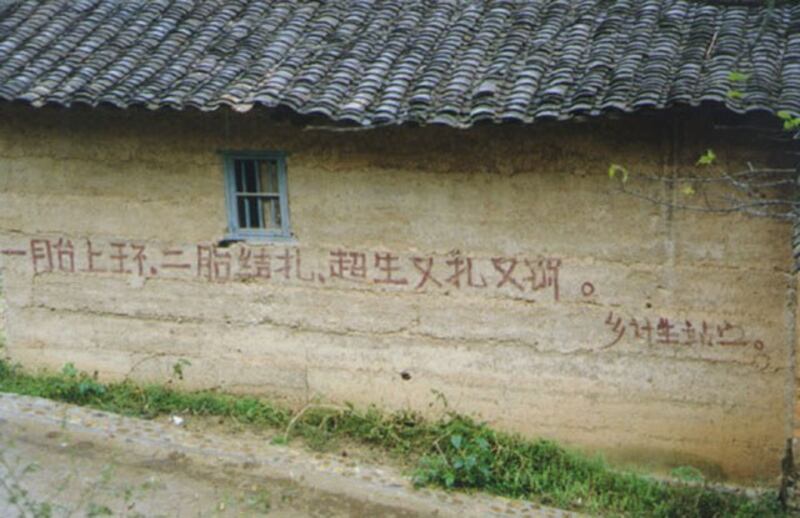 一胎上环、二胎结扎、超生又扎又罚。
乡计生站。